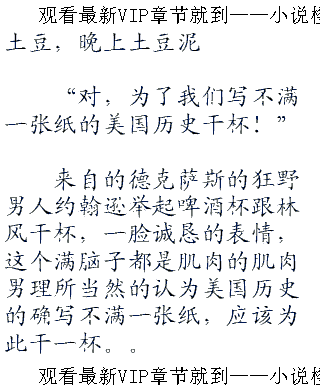 观看最新VIP章节就到——小说
土豆，晚上土豆泥
“对，为了我们写不满
一张纸的美国历史干杯！”
来自的德克萨斯的狂野
男人约翰逊举起啤酒杯跟林
风干杯，一脸诚恳的表情，
这个满脑子都是肌肉的肌肉
男理所当然的认为美国历史
的确写不满一张纸，应该为
此干一杯。。
观看最新VIP章节就到——小说